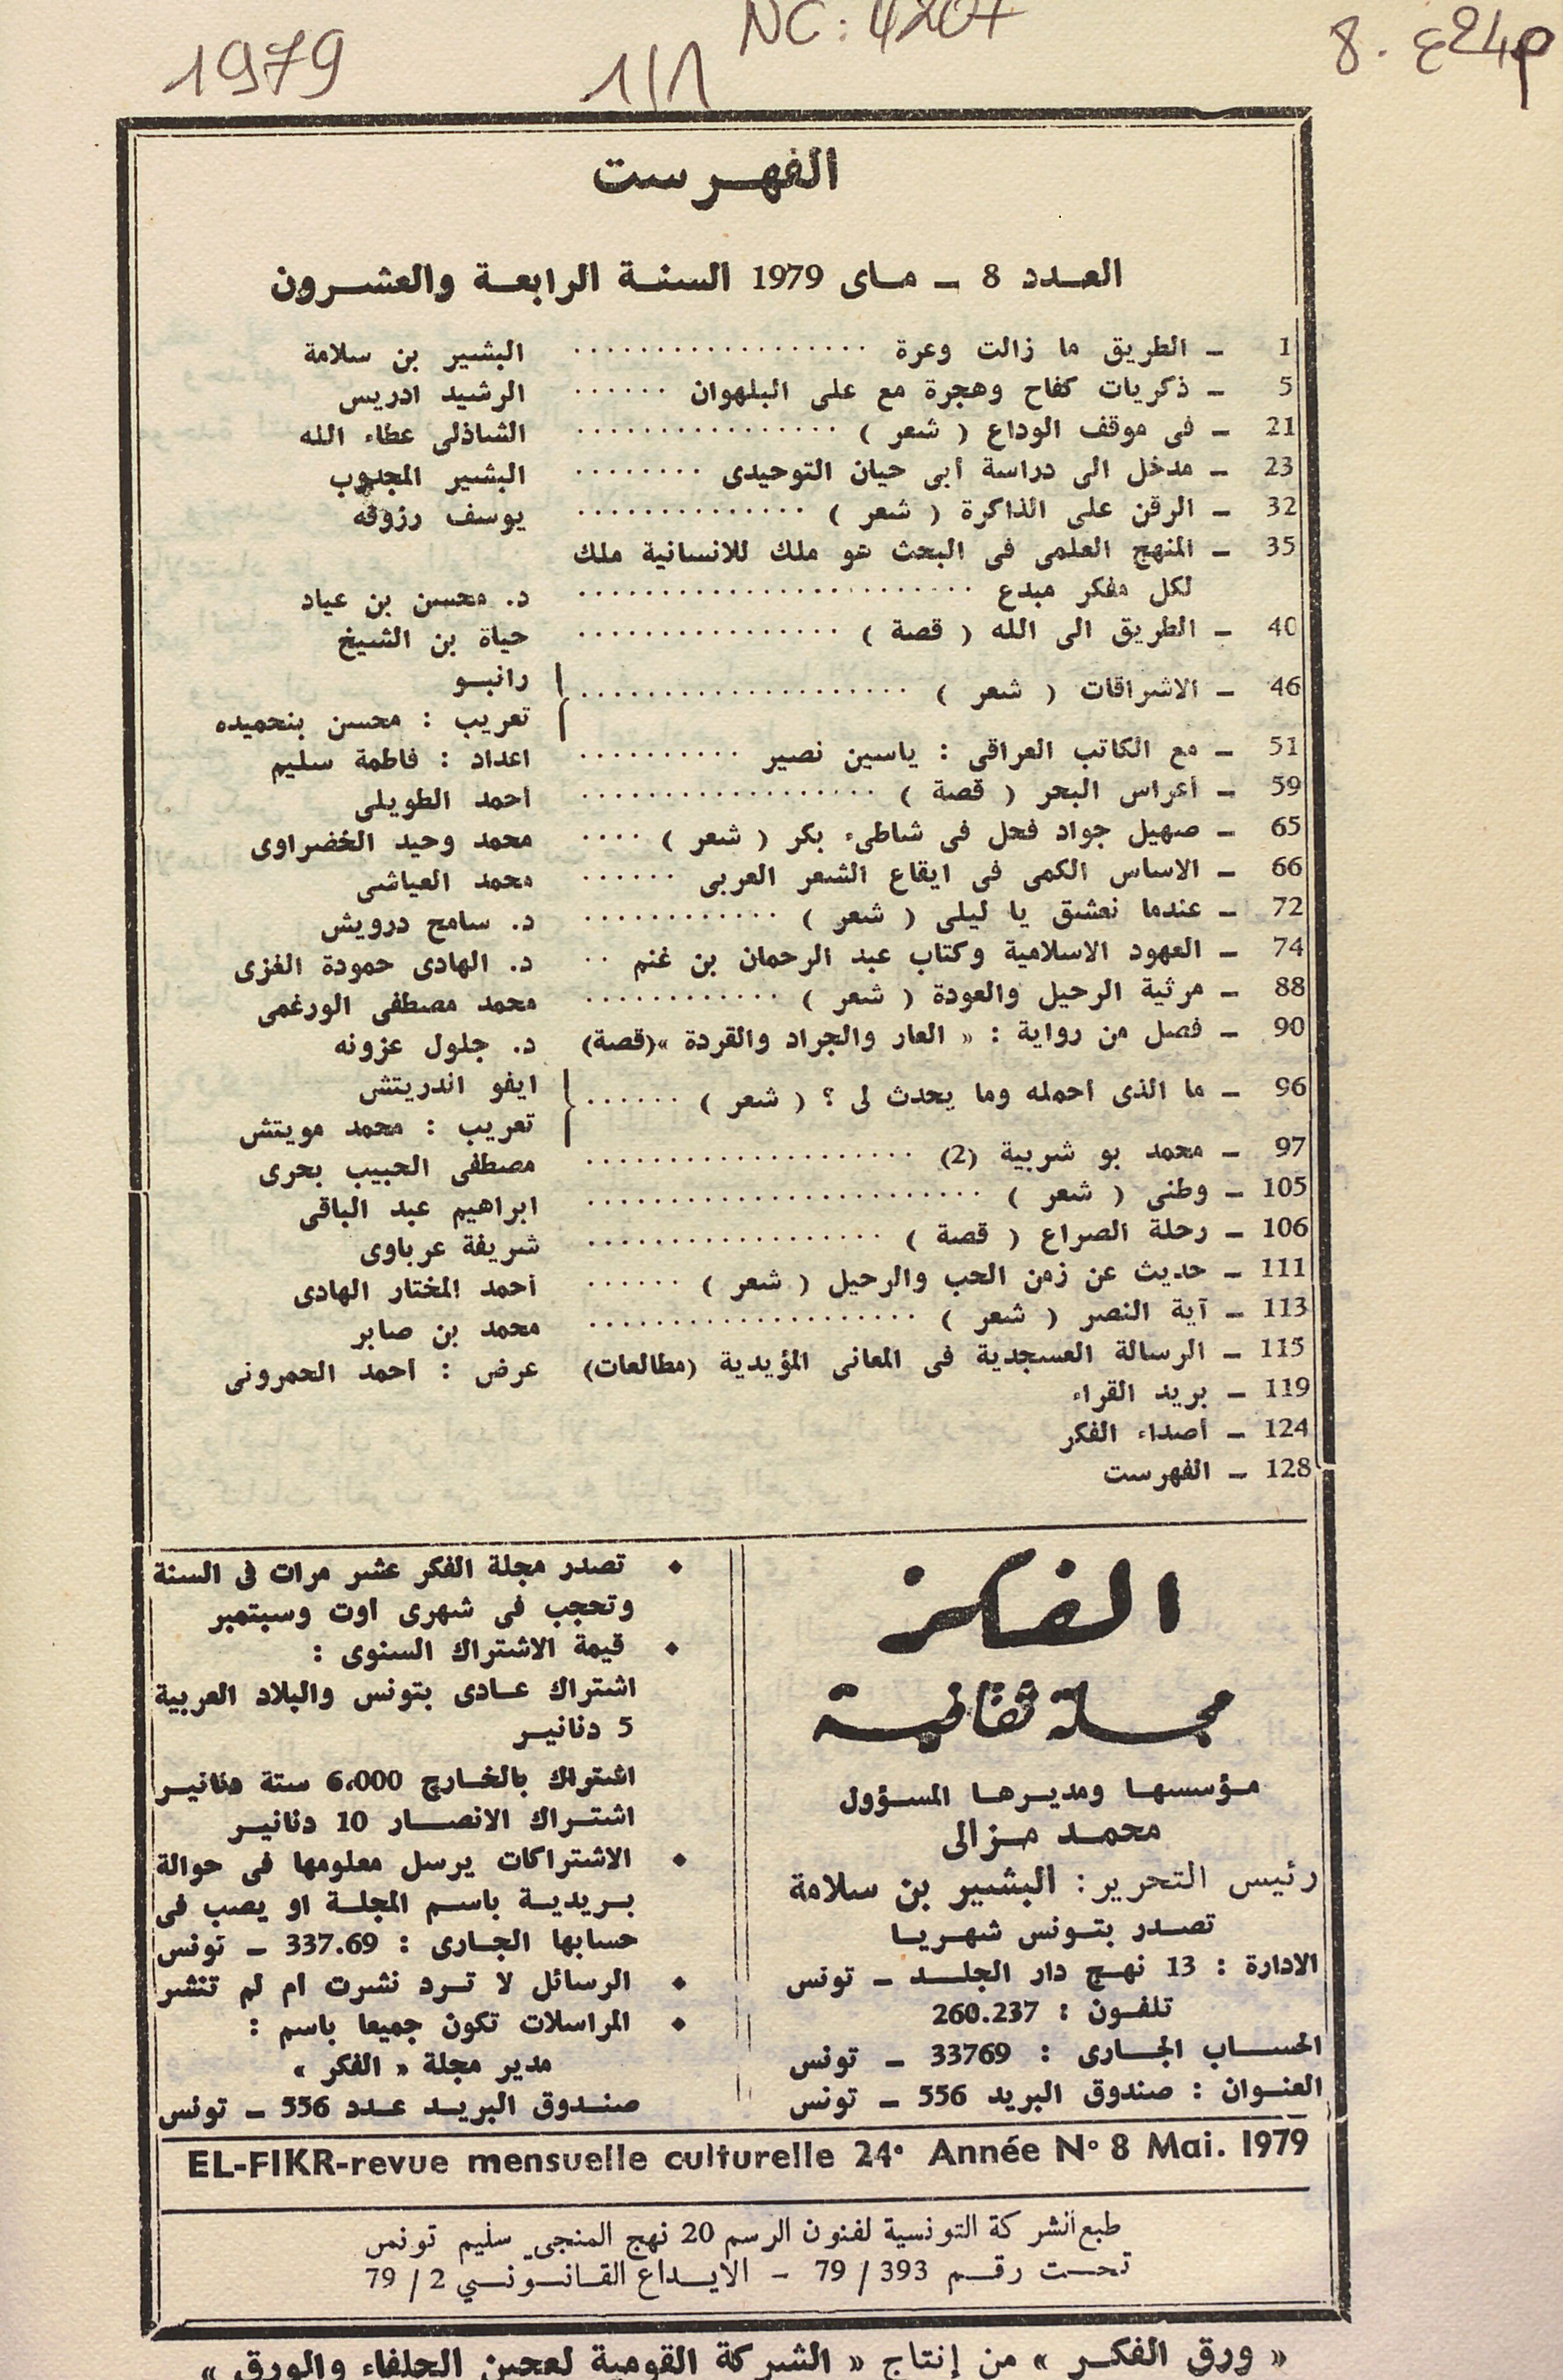 1979
1/1
NC: 4207
8. ع24م
الفهرست
العدد 8 ــ ماى 1979 السنة الرابعة والعشرون
1 ــ الطريق ما زالت وعرة .................. البشير بن سلامة
5 ــ ذكريات كفاح وهجرة مع على البلهوان ...... الرشيد ادريس
21 ــ فى موقف الوداع ( شعر ) ................ الشاذلى عطاء الله
23 ــ مدخل الى دراسة أبى حيان التوحيدى ........ البشير المجدوب
32 ــ الرقن على الذاكرة ( شعر ) .............. يوسف رزوقه
35 ــ المنهج العلمى فى البحث هو ملك للانسانية ملك
لكل مفكر مبدع ........................ د. محسن بن عياد
40 ــ الطريق الى الله ( قصة ) ................ حياة بن الشيخ
46 ــ الاشراقات ( شعر ) .................... رانبو
تعريب : محسن بنحميده
51 ــ مع الكاتب العراقى : ياسين نصير .......... اعداد : فاطمة سليم
59 ــ أعراس البحر ( قصة ) .................. أحمد الطويلى
65 ــ صهيل جواد فحل فى شاطىء بكر ( شعر ) .... محمد وحيد الخضراوى
66 ــ الاساس الكمى فى ايقاع الشعر العربى ...... محمد العياشى
72 ــ عندما نعشق يا ليلى ( شعر ) ............ د. سامح درويش
74 ــ العهود الاسلامية وكتاب عبد الرحمان بن غنم .. د. الهادى حمودة الغزى
88 ــ مرثية الرحيل والعودة ( شعر ) ............ محمد مصطفى الورغمى
90 ــ فصل من رواية : « العار والجراد والقردة »(قصة) د. جلول عزونه
96 ــ ما الذى أحمله وما يحدث لى ؟ ( شعر ) ...... ايفو اندريتش
تعريب : محمد مويتش
97 ــ محمد بو شربية (2) .................... مصطفى الحبيب بحرى
105 ــ وطنى ( شعر ) ........................ ابراهيم عبد الباقى
106 ــ رحلة الصراع ( قصة ) .................. شريفة عرباوى
111 ــ حديث عن زمن الحب والرحيل ( شعر ) ...... أحمد المختار الهادى
113 ــ آية النصر ( شعر ) .................... محمد بن صابر
115 ــ الرسالة العسجدية فى المعانى المؤيدية (مطالعات) عرض : احمد الحمرونى
119 ــ بريد القراء
124 ــ أصداء الفكر
128 ــ الفهرست
الفكر
مجلة ثقافية
مؤسسها ومديرها المسؤول
محمد مزالى
رئيس التحرير: البشير بن سلامة
تصدر بتونس شهريا
الادارة : 13 نهج دار الجلد ــ تونس
تلفون : 260.237
الحساب الجارى : 33769 ــ تونس
العنوان : صندوق البريد 556 ــ تونس
♦ تصدر مجلة الفكر عشر مرات فى السنة
وتحجب فى شهرى اوت وسبتمبر
♦ قيمة الاشتراك السنوى :
اشتراك عادى بتونس والبلاد العربية
5 دنانير
اشتراك بالخارج 6،000 ستة دنانير
اشتراك الانصار 10 دنانير
♦ الاشتراكات يرسل معلومها فى حوالة
بريدية باسم المجلة او يصب فى
حسابها الجارى : 337.69 ــ تونس
♦ الرسائل لا ترد نشرت ام لم تنشر
♦ المراسلات تكون جميعا باسم :
مدير مجلة « الفكر »
صندوق البريد عدد 556 ــ تونس
EL-FIKR-revue mensuelle culturelle 24° Année N° 8 Mai. 1979
طبع الشركة التونسية لفنون الرسم 20 نهج المنجي سليم تونس
تحت رقم 393 / 79 - الايداع القانوني 2 / 79
« ورق الفكر » من إنتاج « الشركة القومية لعجين الحلفاء والورق »